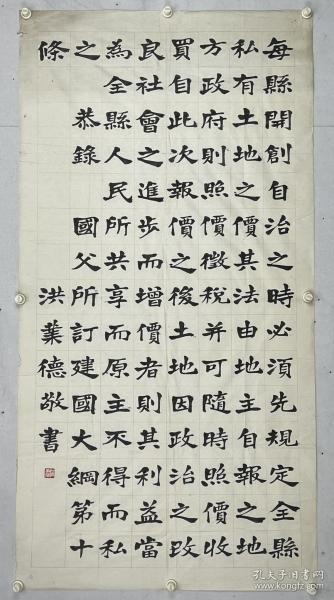 每縣開創自治之時必須先規定全縣
私有土地之價其法由地主自報之地
方政府則照價徵稅并可隨時照價收
買自此次報價之後土地因政治之改
良社會之進步而增價者則其利益當
為全縣人民所共享而原主不得而私
之 恭錄 國父所訂建國大綱第十
條 洪業德敬書
孔夫子旧书网